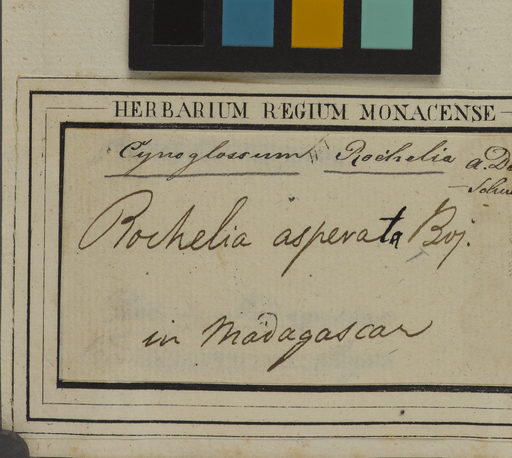 HERBARIUM REGIUM MONACENSE
Cynoglossum Rochelia
Rochelia asperata Boj.
in Madagascar